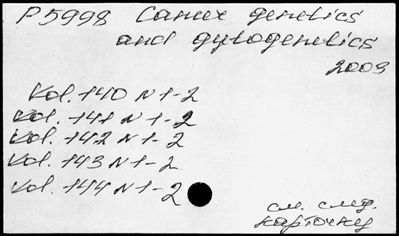 P5998 Cancer genetics
and cytogenetics
2003
Vol. 140 N 1-2
Vol. 141 N 1-2
Vol. 142 N 1-2
Vol. 143 N 1-2
Vol. 144 N 1-2
см. след.
карточку